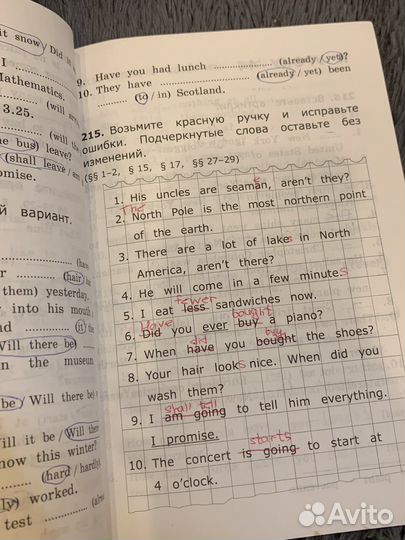 it snow / Did
I
Mathematics.
3.25.
(will
the bus) leave?
(shall leave / am
promise.
й вариант.
(hair)
them) yesterday.
into his mouth
(it)
Will there be)
in the museum
be / Will there be
Will it be / Will there
now this winter?
(hard / hardly)
ly) worked.
test
9. Have you had lunch .................. (already / yet)?
10. They have .................. (already / yet) been
......... (to / in) Scotland.
215. Возьмите красную ручку и исправьте
ошибки. Подчеркнутые слова оставьте без
изменений.
(§§ 1–2, § 15, § 17, §§ 27–29)
1. His uncles are seaman, aren't they?
e
The
2. North Pole is the most northern point
of the earth.
3. There are a lot of lakes in North
America, aren't there?
4. He will come in a few minutes
fewer
5. I eat less sandwiches now.
Have bought
6. Did you ever buy a piano?
did buy
7. When have you bought the shoes?
8. Your hair looks nice. When did you
wash them?
shall tell
9. I am going to tell him everything.
I promise.
starts
10. The concert is going to start at
4 o'clock.
Avito